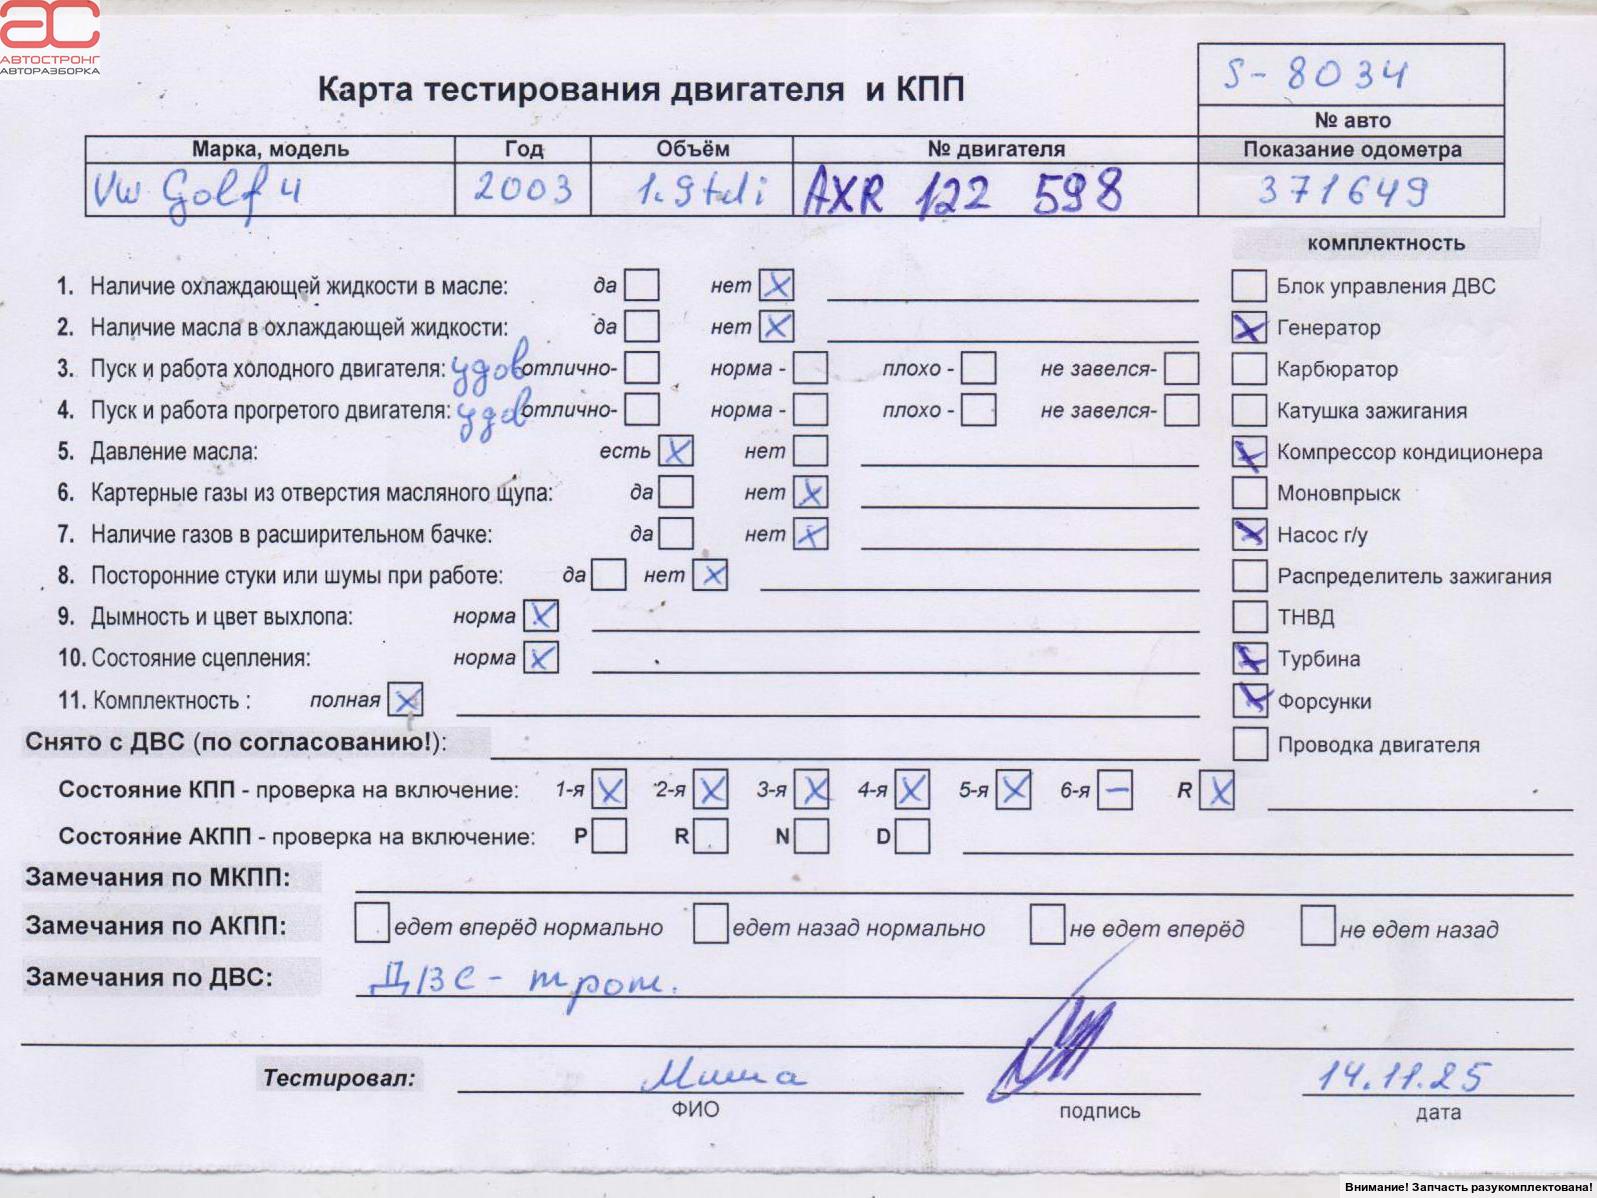 АС
АВТОСТРОНГ
АВТОРАЗБОРКА
Карта тестирования двигателя и КПП
S-8034
№ авто
Марка, модель Год Объём № двигателя Показание одометра
VW Golf 4 2003 1.9tdi AXR 122 598 371649
комплектность
1. Наличие охлаждающей жидкости в масле: да нет X Блок управления ДВС
2. Наличие масла в охлаждающей жидкости: да нет X X Генератор
3. Пуск и работа холодного двигателя: удов отлично- норма - плохо - не завелся- Карбюратор
4. Пуск и работа прогретого двигателя: удов отлично- норма - плохо - не завелся- Катушка зажигания
5. Давление масла: есть X нет X Компрессор кондиционера
6. Картерные газы из отверстия масляного щупа: да нет X Моновпрыск
7. Наличие газов в расширительном бачке: да нет X X Насос г/у
8. Посторонние стуки или шумы при работе: да нет X Распределитель зажигания
9. Дымность и цвет выхлопа: норма X ТНВД
10. Состояние сцепления: норма X X Турбина
11. Комплектность : полная X X Форсунки
Снято с ДВС (по согласованию!): Проводка двигателя
Состояние КПП - проверка на включение: 1-я X 2-я X 3-я X 4-я X 5-я X 6-я – R X
Состояние АКПП - проверка на включение: P R N D
Замечания по МКПП:
Замечания по АКПП: едет вперёд нормально едет назад нормально не едет вперёд не едет назад
Замечания по ДВС: ДВС - трот.
Тестировал: Миша 14.11.25
ФИО подпись дата
Внимание! Запчасть разукомплектована!